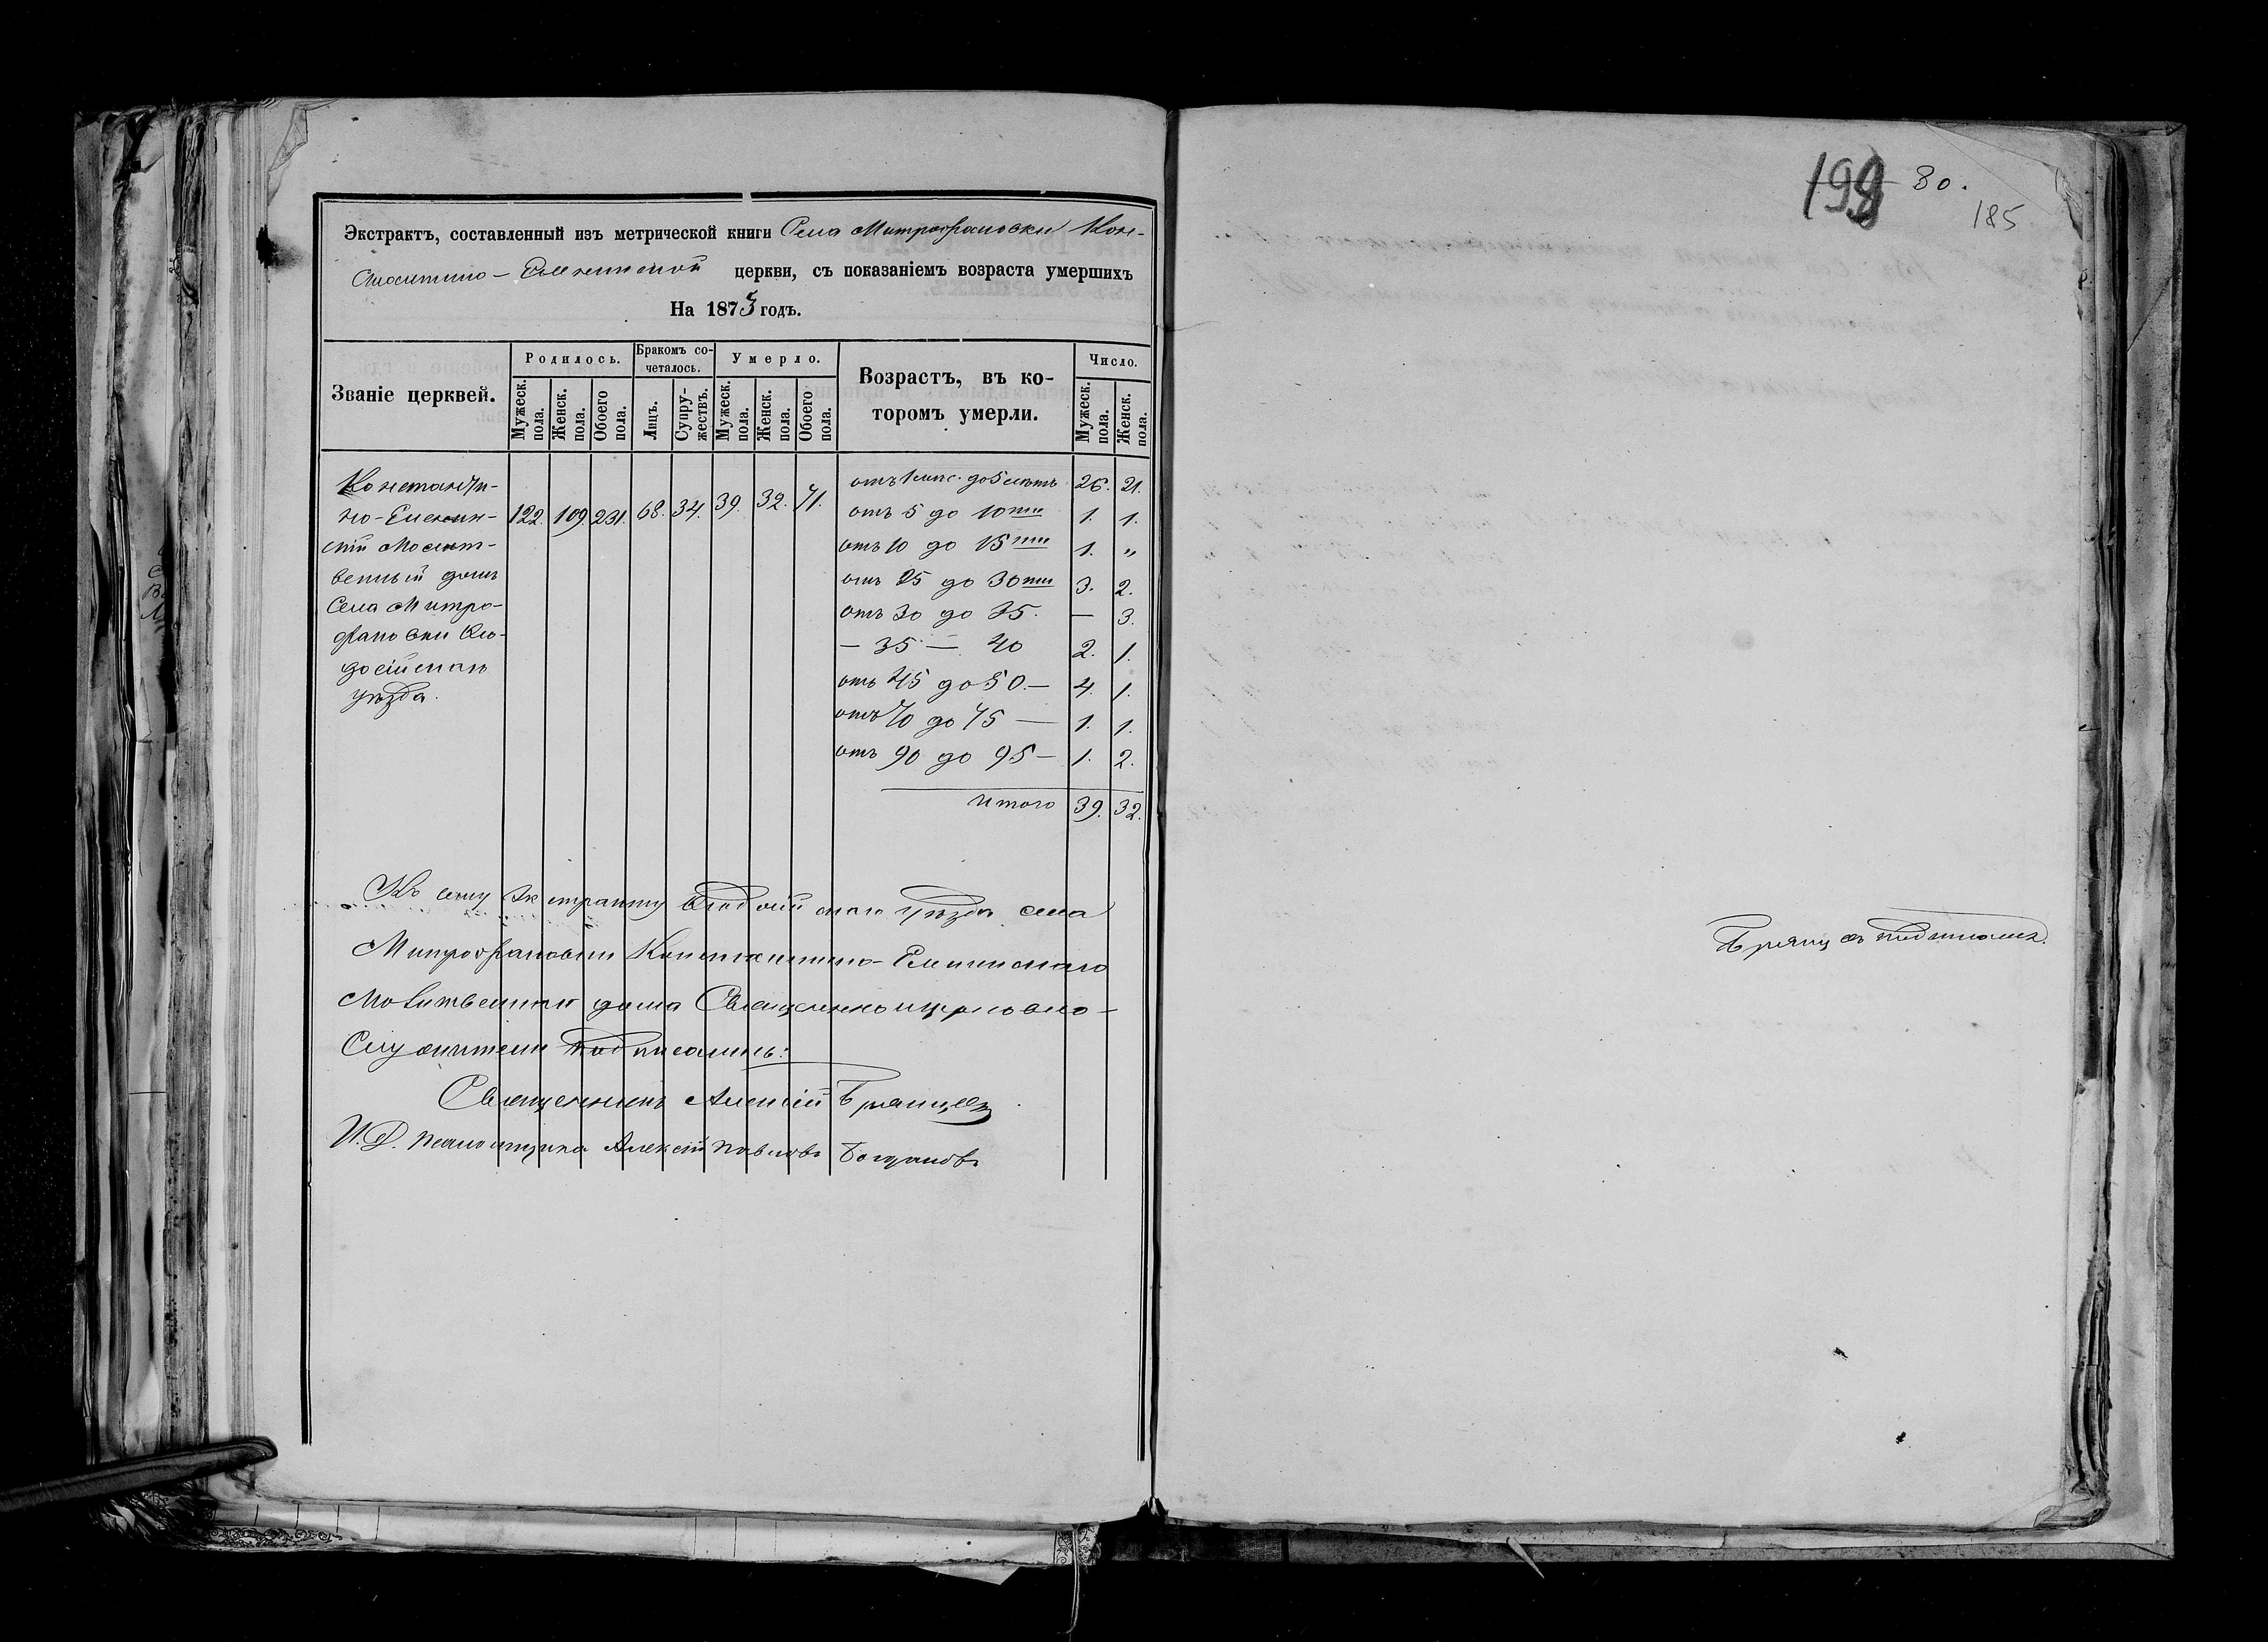 Экстрактъ, составленный изъ метрической книги Села Митрофановки Кон-
стантино-Еленинской церкви, съ показаніемъ возраста умершихъ
На 1873 годъ.
Званіе церквей.
Родилось.
Мужеск. пола.
Женск. пола.
Обоего пола.
Бракомъ со-
четалось.
Лицъ.
Супру-
жествъ.
Умерло.
Мужеск. пола.
Женск. пола.
Обоего пола.
Возрастъ, въ ко-
торомъ умерли.
Число.
Мужеск. пола.
Женск. пола.
Константи-
но-Еленин-
скій Молит-
венный домъ
Села Митро-
фановки Ѳео-
досійскаго
уѣзда.
122. 109. 231. 68. 34. 39. 32. 71.
отъ 1 мѣс. до 5 лѣтъ 26. 21.
отъ 5 до 10ти 1. 1.
отъ 10 до 15ти 1. "
отъ 25 до 30ти 3. 2.
отъ 30 до 35. — 3.
— 35 — 40 2. 1.
отъ 45 до 50.— 4. 1.
отъ 70 до 75 — 1. 1.
отъ 90 до 95 — 1. 2.
итого 39. 32.
Къ сему экстракту Ѳеодосійскаго уѣзда села
Митрофановки Константино-Еленинскаго
Молитвеннаго дома Священноцерковно-
Служители подписались:
Священникъ Алексій Брянцевъ
И.Д. псаломщика Алексій Павловъ Богдановъ
198 80.
185